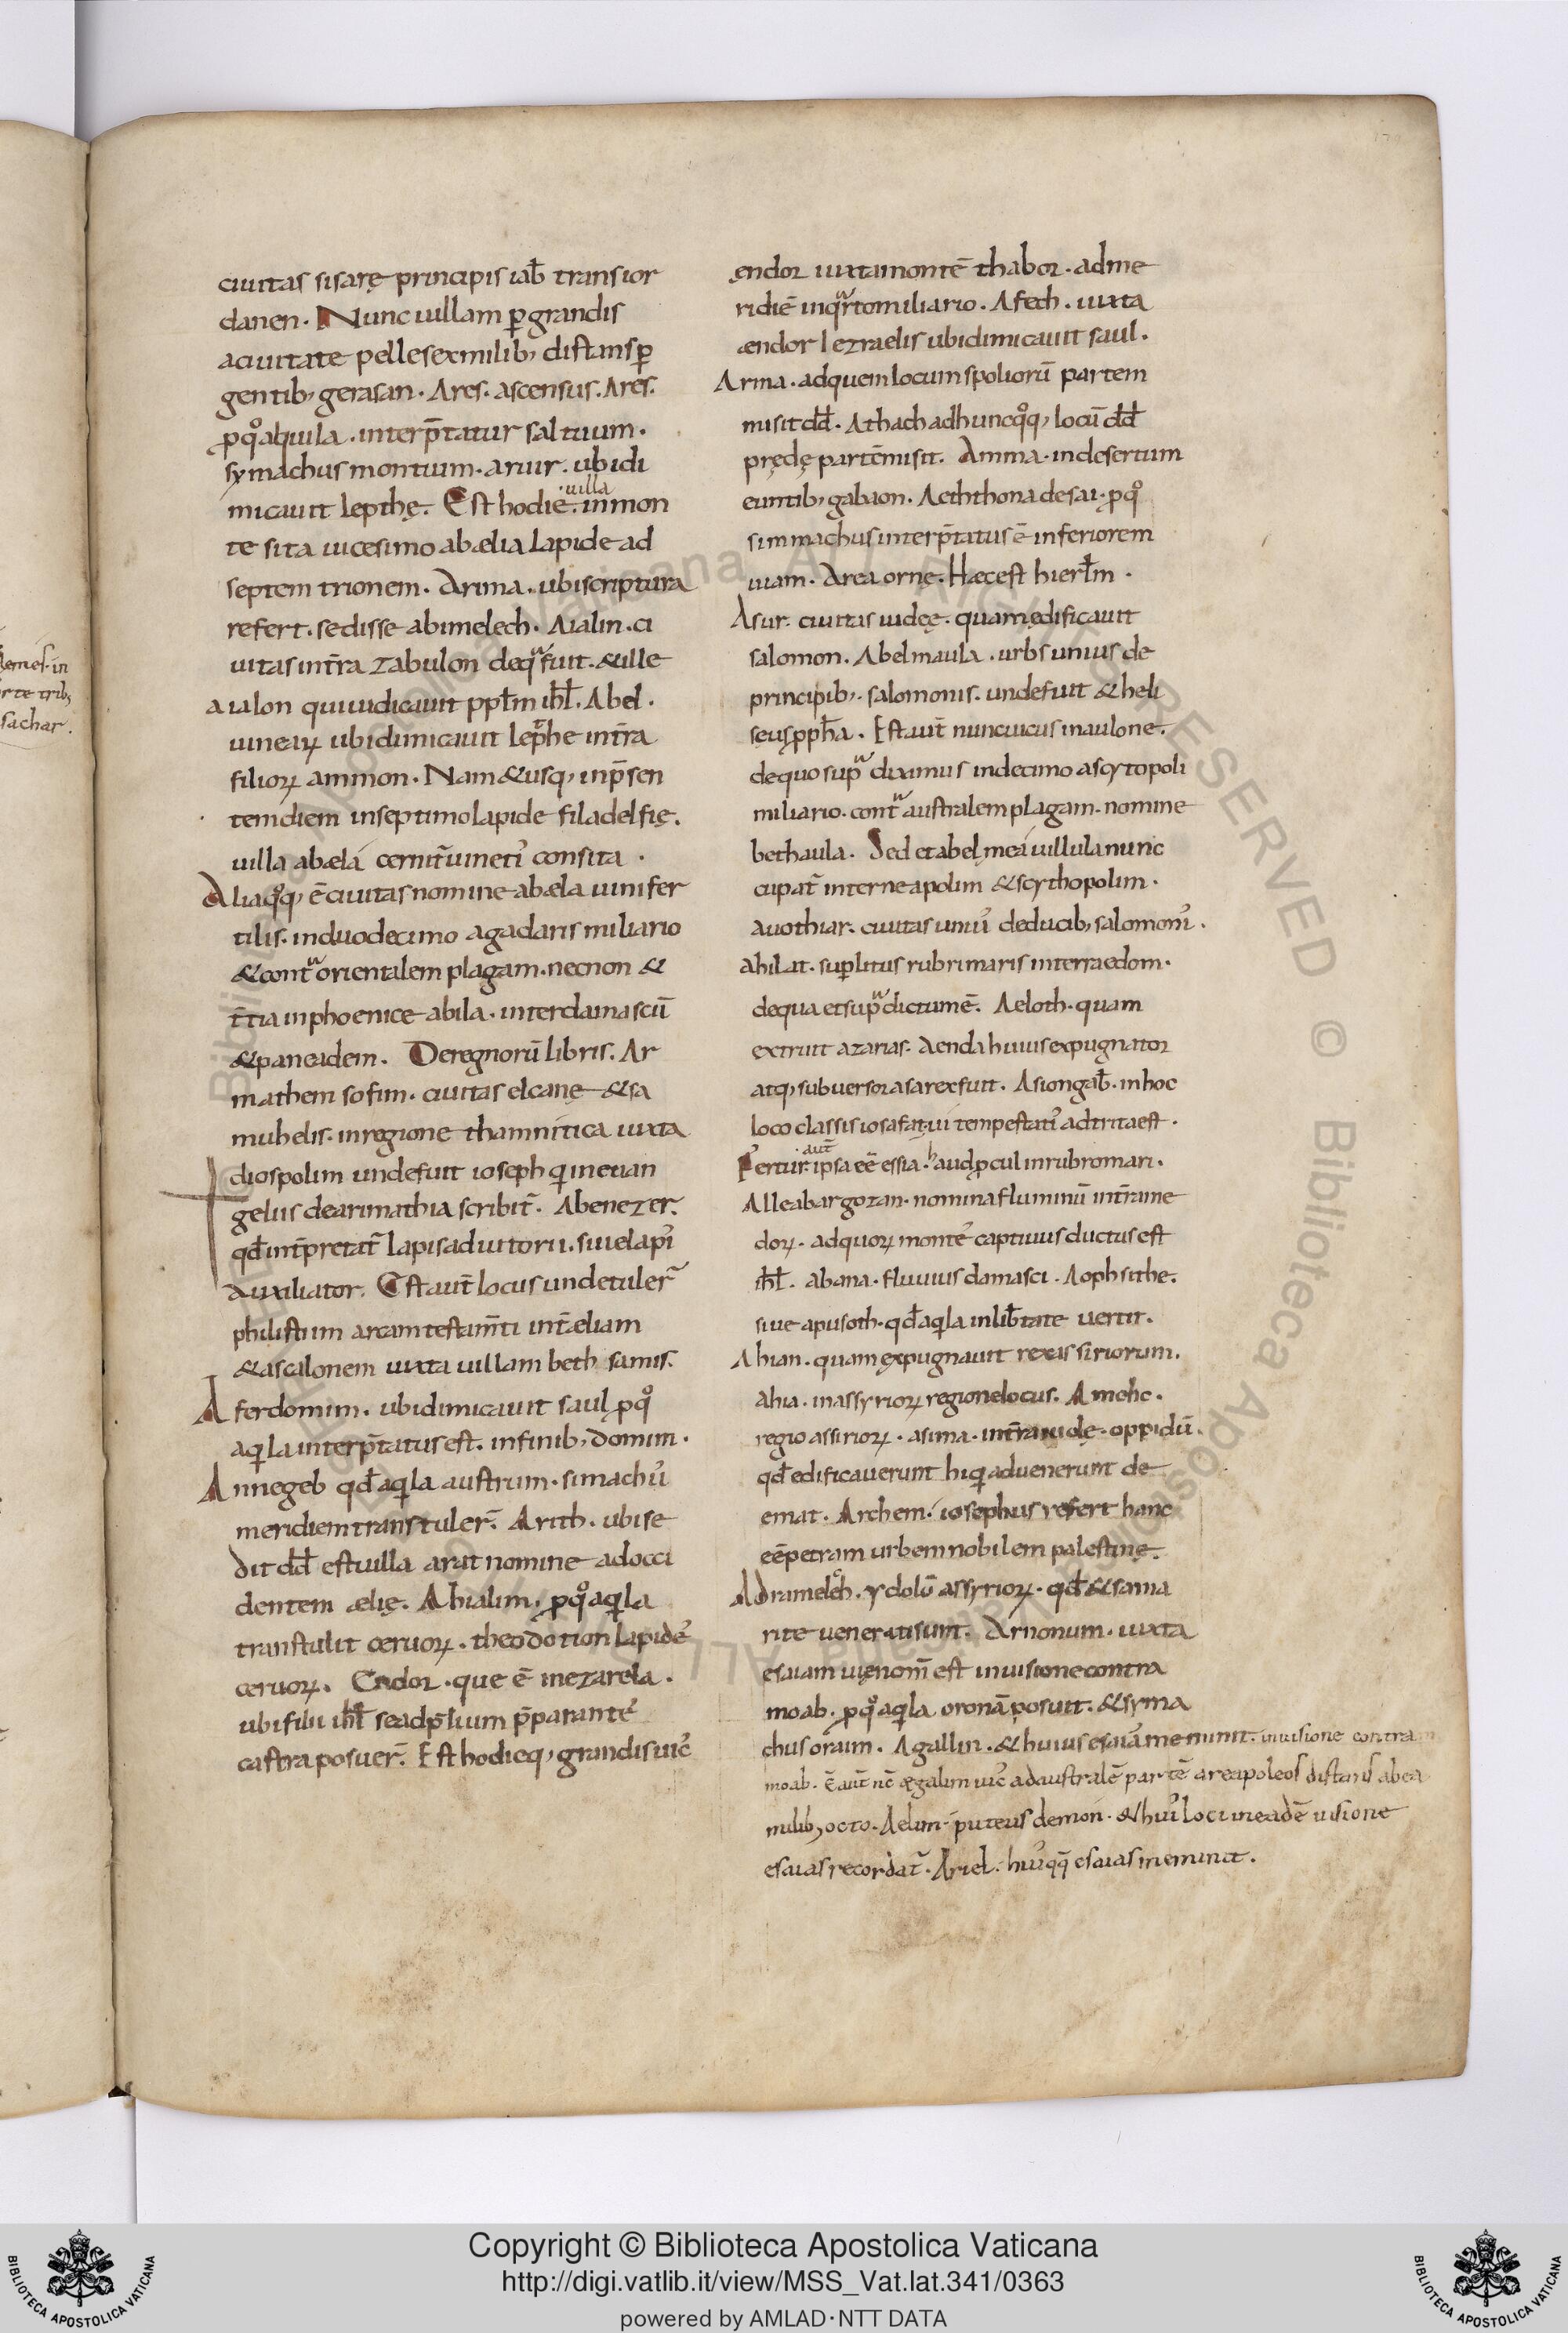 ciuitas sisarę principis iab̄ transior
danen. Nunc uillam p̱grandis
aciuitate pellesexmilib; distansp̱
gentib; gerasan. Ares. ascensus. Ares.
p̱qͦ aquila. interp̄tatur saltuum.
symachus montium. aruir. ubidi
micauit lepthę. Est hodie uilla inmon
te sita uicesimo abælia lapide ad
septem trionem. Arima. ubiscriptura
refert. sedisse abimelech. Aialin. ci
uitas int̄ra zabulon deqᵃ fuit. &ille
aialon quiiudicauit ppl̄m ihl̄. Abel.
uinearꝝ ubidimicauit lepthe int̄ra
filiorꝝ ammon. Nam &usq; inp̄sen
temdiem inseptimolapide filadelfię.
uilla abæla cernit̄ uinetiʼ consita.
Aliaqͦq; ē ciuitas nomine abæla uinifer
tilis. induodecimo agadaris miliario
&contᵃ orientalem plagam. necnon &
t̄tia inphoenice abila. interdamascū
&paneadem. Deregnorū libris. Ar
mathem sofim. ciuitas elcanę &sa
muhelis. inregione thamnitica iuxta
diospolim undefuit ioseph qi ineuan
geliis dearimathia scribit̄. Abenezer.
qd̄ int̄pretat̄ lapisadiutorii. siuelapiʼ
auxiliator. Est aut̄ locus undetuler̄
philistiim arcamtestam̄ti int̄æliam
&ascalonem iuxta uillam beth samis.
Aferdomim. ubidimicauit saul p̱qͦ
aqila interp̄tatus est. infinib; domim.
Annegeb qd̄ aqila austrum. simachuʼ
meridiem transtuler̄. Arith. ubise
dit dd̄ estuilla arat nomine adocci
dentem ælię. Ahialim. p̱qͦ aqila
transtulit ceruorꝝ. theodotion lapideʼ
ceruorꝝ. Endor. que ē inezarela.
ubi filii ihl̄ seadp̄lium p̄paranteʼ
castra posuer̄. Est hodieq; grandis uicʼ
ęndor iuxtamontē thabor. adme
ridiē inqᵃrtomiliario. Afech. iuxta
ændor Iezraelis ubidimicauit saul.
Arma. adquemlocumspoliorū partem
misit dd̄. Athach adhuncqͦq; locū dd̄
prędę partēmisit. Amma. indesertum
euntib; gabaon. Aeththona desai. p̱qͦ
simmachus interp̄tatus ē inferiorem
uiam. Area ornę. Hæcest hierl̄m.
Asur. ciuitas iudęę. quamędificauit
salomon. Abelmaula. urbs unius de
principib; salomonis. undefuit &heli
seus pph̄a. Est aut̄ nuncuicus inaulone.
dequo supᵃ diximus indecimo ascytopoli
miliario. contᵃ australemplagam. nomine
bethaula. Sed etabelmea uillulanunc
cupat̄ interneapolim &scythopolim.
auothiar. ciuitas uniuʼ deducib; salomoniʼ.
ahilat. sup̱litus rubrimaris interraedom.
dequa etsupᵃ dictumē. Aeloth. quam
extruit azarias. Aenda huius expugnator
atq; subuersor asarex fuit. Asiongab̄. inhoc
loco classis iosafat. ui tempestatiʼ adtritaest.
Fertur aut̄ ipsa eē essia. haud p̱cul inrubromari.
Alleabar gozan. nomina fluminū int̄rame
dorꝝ. adquorꝝ monteʼ captiuus ductus est
ihl̄. abana. fluuius damasci. Aophsithe.
siue apusoth. qd̄ aqila inlib̄tate uertit.
Ahian. quamęxpugnauit rexas siriorum.
ahia. inassyriorꝝ regione locus. Amehc.
regio assiriorꝝ. asima. int̄raiudę. oppidū.
qd̄ edificauerunt hiqi aduenerunt de
emat. Archem. iosephus refert hanc
eē petram urbem nobilem palestinę.
Adramelech. ydolū assyriorꝝ. qd̄ &sama
rite ueneratisunt. Arnonum. iuxta
esaiam uię nom̄ est inuisione contra
moab. p̱qͦ aqila oronā posuit. &syma
chus oraim. Agallin. &huius esaiā meminit. inuisione contra
moab. ē aut̄ nc̄ ægalim uicʼ adaustralē partē areapoleos distans abea
milib; octo. Aelim. puteus demon. &huiʼ loci ineadē uisione
esaias recordat̄. Ariel. huiʼqq̄ esaias meminit.
rte trib;
sachar.
Copyright © Biblioteca Apostolica Vaticana
http://digi.vatlib.it/view/MSS_Vat.lat.341/0363
powered by AMLAD·NTT DATA
BIBLIOTECA APOSTOLICA VATICANA
BIBLIOTECA APOSTOLICA VATICANA